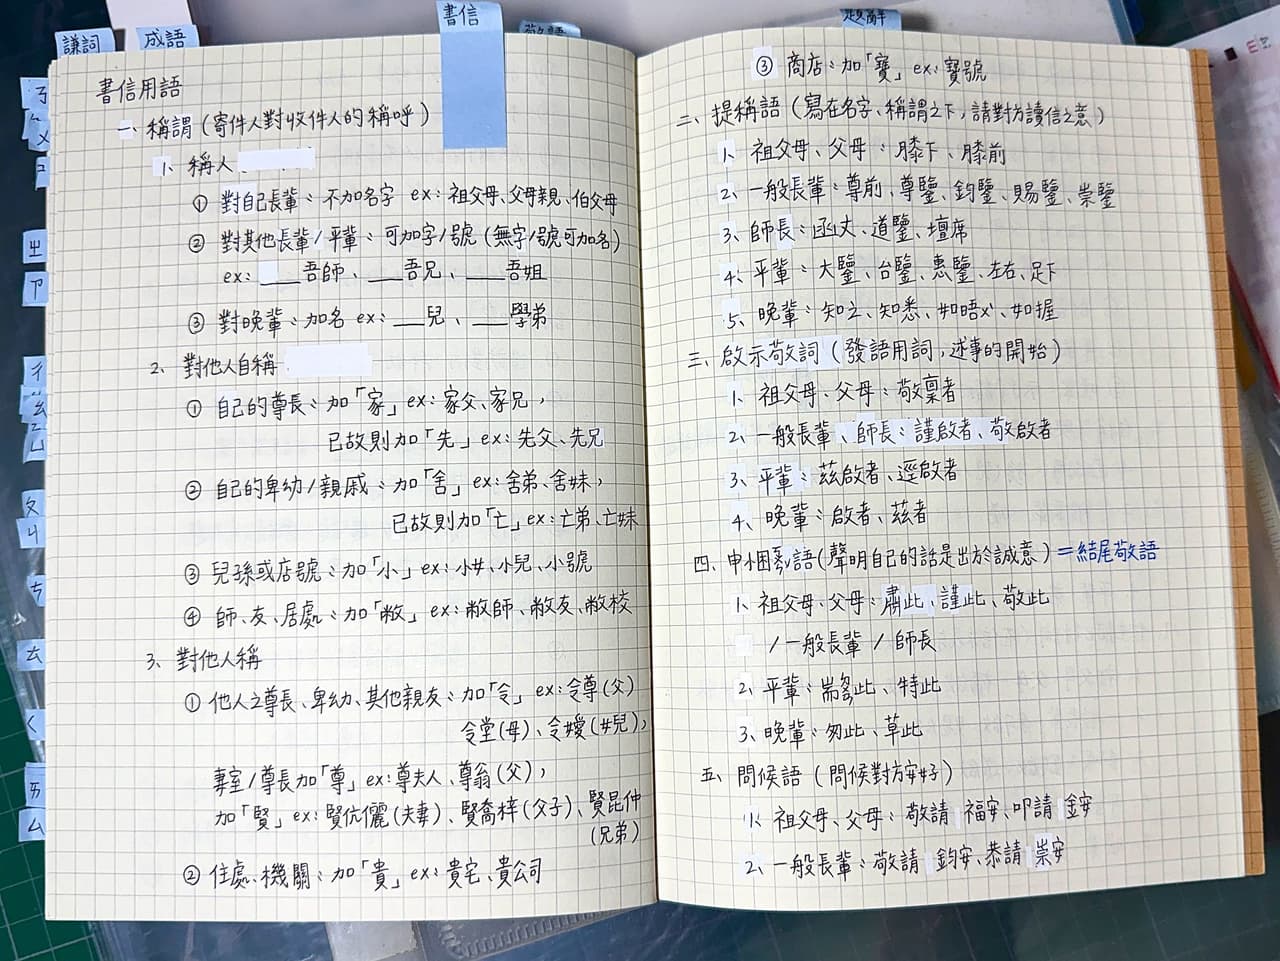 謙詞
成語
書信
敬語
題辭
ㄋ
ㄆ
ㄨ
ㄓ
ㄗ
ㄔ
ㄠ
ㄩ
ㄆ
ㄐ
ㄘ
ㄊ
ㄑ
ㄞ
ㄙ
書信用語
一、稱謂(寄件人對收件人的稱呼)
1、稱人
① 對自己長輩：不加名字 ex：祖父母、父母親、伯父母
② 對其他長輩/平輩：可加字/號(無字/號可加名)
ex：___吾師、___吾兄、___吾姐
③ 對晚輩：加名 ex：___兒、___學弟
2、對他人自稱
① 自己的尊長：加「家」ex：家父、家兄，
已故則加「先」ex：先父、先兄
② 自己的卑幼/親戚：加「舍」ex：舍弟、舍妹，
已故則加「亡」ex：亡弟、亡妹
③ 兒孫或店號：加「小」ex：小女、小兒、小號
④ 師、友、居處：加「敝」ex：敝師、敝友、敝校
3、對他人稱
① 他人之尊長、卑幼、其他親友：加「令」ex：令尊(父)
令堂(母)、令嬡(女兒)，
妻室/尊長加「尊」ex：尊夫人、尊翁(父)，
加「賢」ex：賢伉儷(夫妻)、賢喬梓(父子)、賢昆仲
(兄弟)
② 住處、機關：加「貴」ex：貴宅、貴公司
③ 商店：加「寶」ex：寶號
二、提稱語(寫在名字、稱謂之下，請對方讀信之意)
1、祖父母、父母：膝下、膝前
2、一般長輩：尊前、尊鑒、鈞鑒、賜鑒、崇鑒
3、師長：函丈、道鑒、壇席
4、平輩：大鑒、台鑒、惠鑒、左右、足下
5、晚輩：知之、知悉、如晤、如握
三、啟示敬詞(發語用詞，述事的開始)
1、祖父母、父母：敬稟者
2、一般長輩、師長：謹啟者、敬啟者
3、平輩：茲啟者、逕啟者
4、晚輩：啟者、茲者
四、申悃語(聲明自己的話是出於誠意)=結尾敬語
1、祖父母、父母：肅此、謹此、敬此
/一般長輩/師長
2、平輩：耑此、特此
3、晚輩：匆此、草此
五、問候語(問候對方安好)
1、祖父母、父母：敬請 福安、叩請 金安
2、一般長輩：敬請 鈞安、恭請 崇安